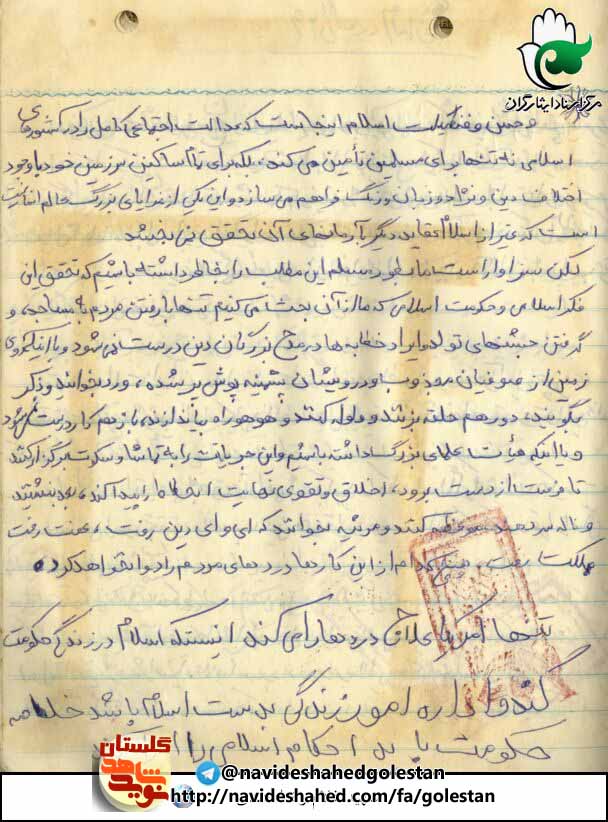 مرکز اسناد ایثارگران
و حسن و فضیلت اسلام اینجاست که عدالت اجتماعی کامل را در کشورهای
اسلامی نه تنها برای مسلمین تأمین می کند، بلکه برای تمام ساکنین سرزمین خود با وجود
اختلاف دین و نژاد و زبان و رنگ فراهم می سازد و این یکی از مزایای بزرگ عالم انسانیت
است که غیر از اسلام عقاید دیگر به آرمانهای آن تحقق نمی بخشد
لکن سزاوار است ما بطور مسلم این مطلب را بخاطر داشته باشیم که تحقق این
فکر اسلامی و حکومت اسلامی که ما از آن بحث می کنیم تنها با رفتن مردم به مساجد، و
گرفتن جشنهای تولد و ایراد خطابه ها در مدح بزرگان دین درست نمی شود و یا اینکه گروهی
زمین از صوفیان مجذوب و درویشان پشمینه پوش پر شده، ورد بخوانند و ذکر
بگویند، دور هم حلقه بزنند و ولوله کنند و هوهو راه بیاندازند، باز هم کار درست نمی شود
و یا اینکه هیأت علمای بزرگ داشته باشیم و این جریانات را به تماشا و سکوت برگزار کنند
تا فرصت از دست برود، اخلاق و تقوی نهایت انحطاط را پیدا کند، بعد بنشینند
و ناله سر دهند موعظه کنند و مرثیه بخوانند که ای وای دین رفت، عفت رفت
مملکت رفت، هیچ کدام از این کارها دردهای مردم را دوا نخواهد کرد.
تنها امری که علاج دردها را می کند اینستکه اسلام در زندگی حکومت
کند و اداره امور زندگی بدست اسلام باشد خلاصه
حکومت باید احکام اسلامی را
گلستان
نوید شاهد
@navideshahedgolestan
http://navideshahed.com/fa/golestan